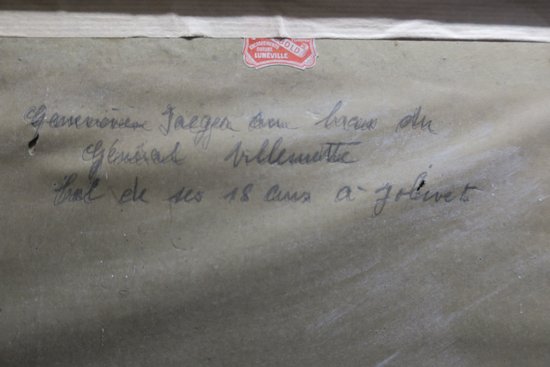 LUNÉVILLE
Geneviève Jaeger au bras du
Général Villemotte
bal de ses 18 ans à Jolivet